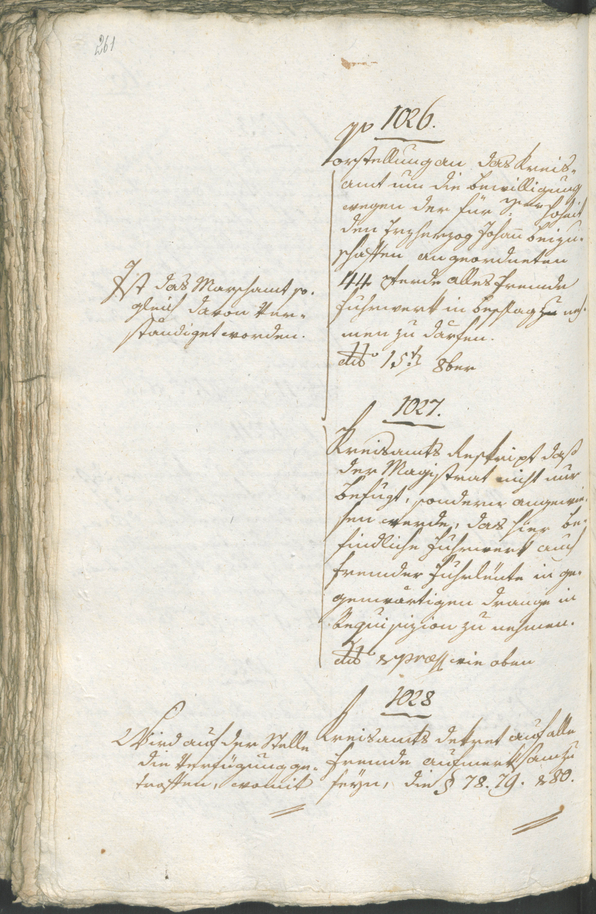 261
1026.
Vorstellung an das Kreis-
amt um die Bewilligung
wegen der für Se Hoheit
den Erzherzog Johann beizu-
schaffen angeordneten
44 Pferde alles fremde
Fuhrwerk in Beschlag zu neh-
men zu dürfen.
dtto 15t 8ber
Ist das Marschamt so-
gleich davon ver-
ständiget worden.
1027.
Kreisamts Reskript daß
der Magistrat nicht nur
befugt, sondern angewie-
sen werde, das hier be-
findliche Fuhrwerk auch
fremder Fuhrleute in ge-
genwärtigen Drange in
Requisizion zu nehmen.
dtto & præss wie oben
1028
Kreisamts dekret auf alle
Fremde aufmerksam zu
seyn, die § 78. 79. & 80.
Wird auf der Stelle
die Verfügung ge-
troffen, womit